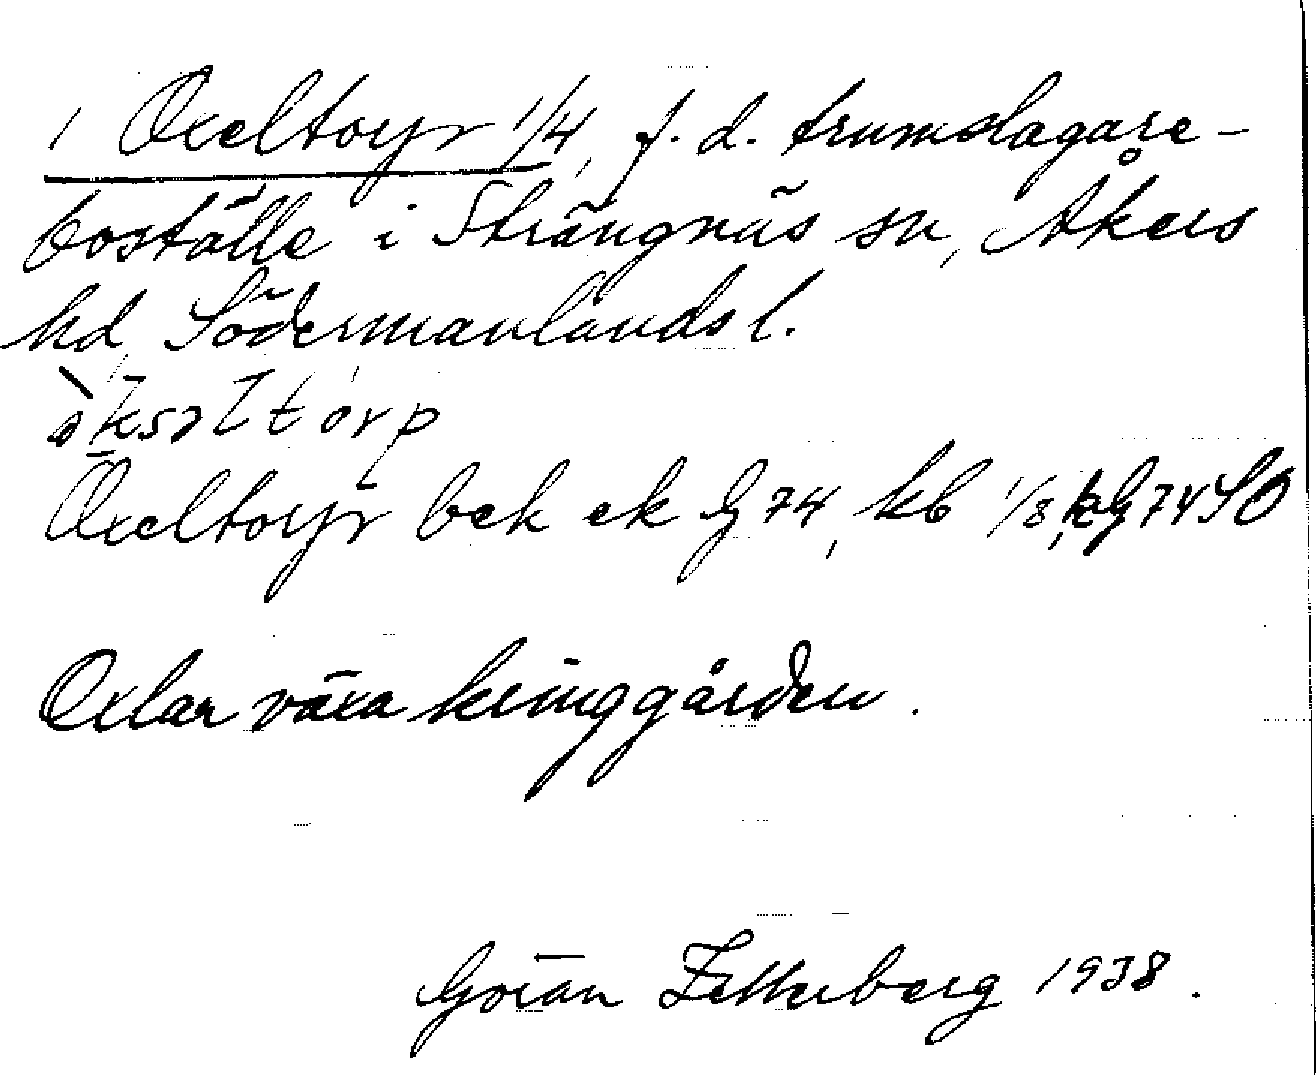 1 Oxeltorp 1/4, f. d. trumslagare-
boställe i Strängnäs sn, Åkers
hd, Södermanlands l.
òksəltórp
Öxeltorp bek ek G 74, kb 1/8, G 74 SO
Oxlar växa kring gården.
Göran Zetterberg 1938.